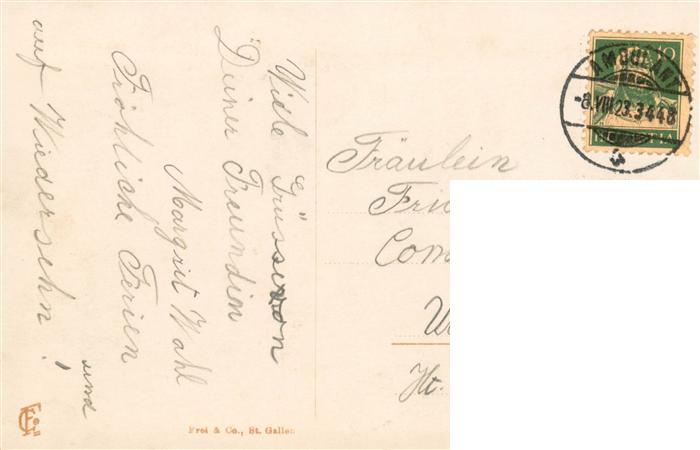 Viele Grüsse von
Deiner Freundin
Margrit Wahl
Fröhliche Ferien
und
auf Wiedersehn!
Fräulein
Ht.
10
AMBULANT
-8.VIII.23.3448
HELVETIA
Frei & Co., St. Gallen